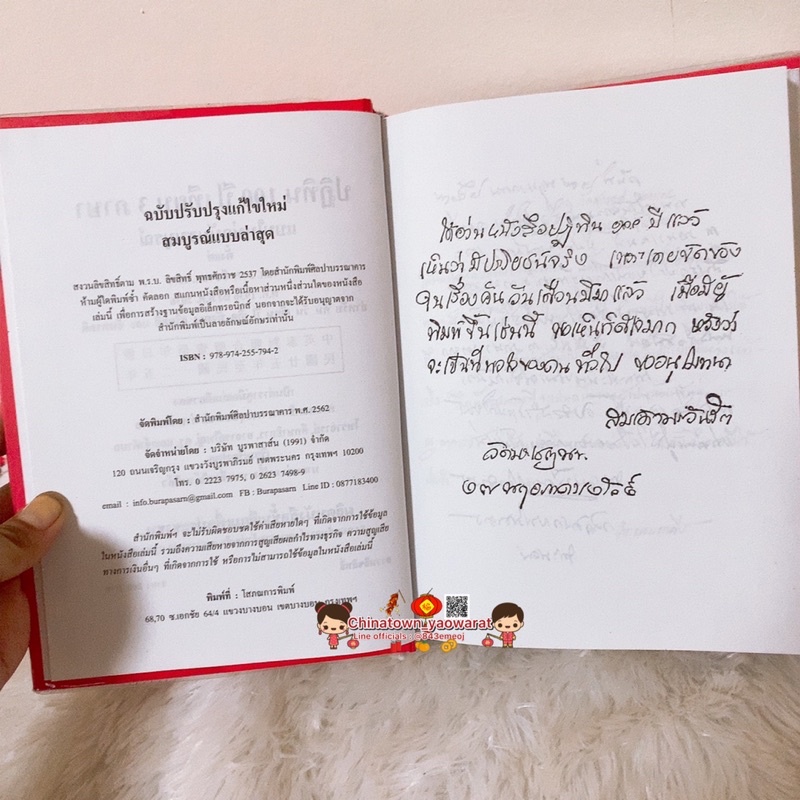 ฉบับปรับปรุงแก้ไขใหม่
สมบูรณ์แบบล่าสุด
สงวนลิขสิทธิ์ตาม พ.ร.บ. ลิขสิทธิ์ พุทธศักราช 2537 โดยสำนักพิมพ์ศิลปาบรรณาคาร
ห้ามผู้ใดพิมพ์ซ้ำ คัดลอก สแกนหนังสือหรือเนื้อหาส่วนหนึ่งส่วนใดของหนังสือ
เล่มนี้ เพื่อการสร้างฐานข้อมูลอิเล็กทรอนิกส์ นอกจากจะได้รับอนุญาตจาก
สำนักพิมพ์เป็นลายลักษณ์อักษรเท่านั้น
ISBN : 978-974-255-794-2
จัดพิมพ์โดย : สำนักพิมพ์ศิลปาบรรณาคาร พ.ศ. 2562
จัดจำหน่ายโดย : บริษัท บูรพาสาส์น (1991) จำกัด
120 ถนนเจริญกรุง แขวงวังบูรพาภิรมย์ เขตพระนคร กรุงเทพฯ 10200
โทร. 0 2223 7975, 0 2623 7498-9
email : info.burapasarn@gmail.com FB : Burapasarn Line ID : 0877183400
สำนักพิมพ์ฯ จะไม่รับผิดชอบชดใช้ค่าเสียหายใดๆ ที่เกิดจากการใช้ข้อมูล
ในหนังสือเล่มนี้ รวมถึงความเสียหายจากการสูญเสียผลกำไรทางธุรกิจ ความสูญเสีย
ทางการเงินอื่นๆ ที่เกิดจากการใช้ หรือการไม่สามารถใช้ข้อมูลในหนังสือเล่มนี้
พิมพ์ที่ : โสภณการพิมพ์
68,70 ซ.เอกชัย 64/4 แขวงบางบอน เขตบางบอน กรุงเทพฯ
ได้อ่านหนังสือปฏิทิน ปี แล้ว
เห็นว่ามีประโยชน์จริง
คนเรื่องคืนวันเดือนปีมาแล้ว เมื่อมีผู้
พิมพ์ขึ้นเช่นนี้ ขอเห็นก็ดีใจมาก หวังว่า
จะเป็นที่พอใจของคนทั่วไป ขออนุโมทนา
Chinatown_yaowarat
Line officials : @843emeoj